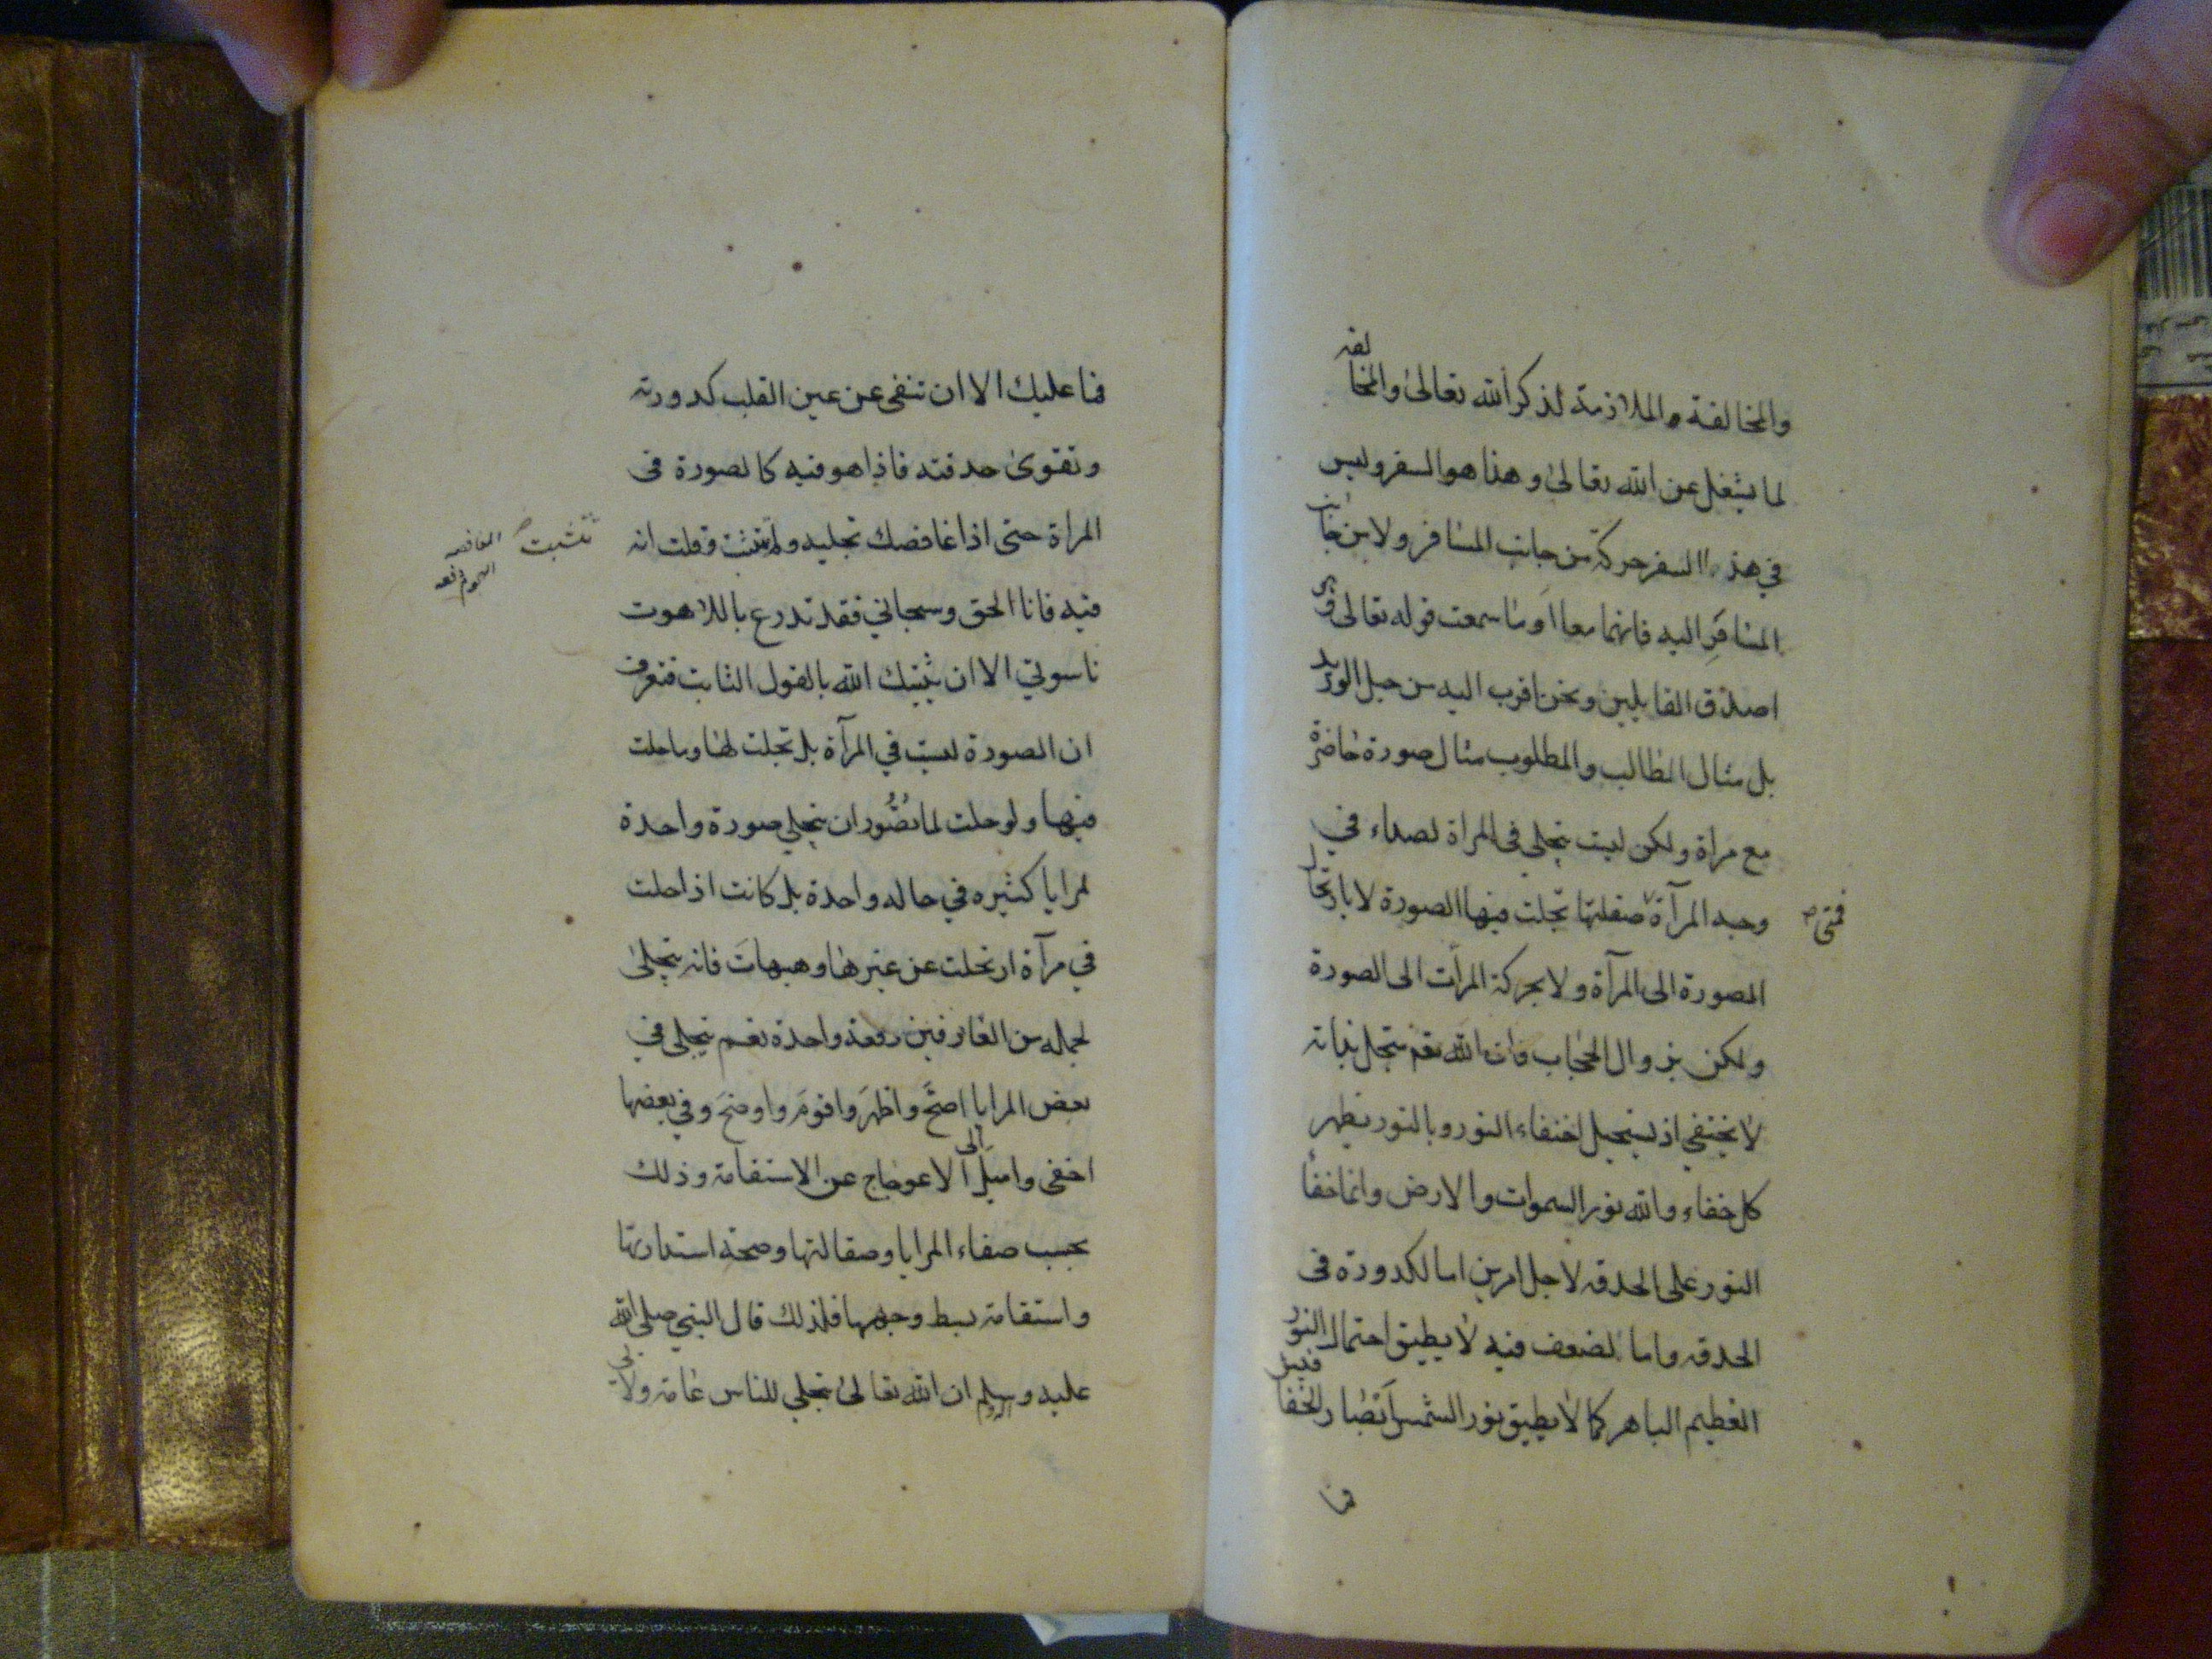 والمخالفة والملازمة لذكر الله تعالى والمخالفة
لما يشغل عن الله تعالى وهذا هو السفر وليس
في هذا السفر حركة من جانب المسافر ولا من جانب
المسافر اليه فانهما معا اوما سمعت قوله تعالى وهو
اصدق القايلين ونحن اقرب اليه من حبل الوريد
بل مثال الطالب والمطلوب مثال صورة حاضرة
مع مراة ولكن ليست يتجلى في المراة لصداء في
وجه المرآة صقلتها تجلت فيها الصورة لا بارتحال
فمتى صح
الصورة الى المرآة ولا بحركة المرأت الى الصورة
ولكن بزوال الحجاب فان الله تعم متجل بذاته
لا يختفي اذ يستحيل اختفاء النور وبالنور يظهر
كل خفاء والله نور السموات والارض وانما خفأ
النور على الحدقه لاجل امرين اما لكدورة في
الحدقه واما لضعف فيه لا يطيق احتمال النور
العظيم الباهر كما لا يطيق نور الشمس ابصار الخفافيش
فما
فما عليك الا ان تنقي عن عين القلب كدورته
وتقوى حدقته فاذا هو فيه كالصورة في
المراة حتى اذا غافصك تجليه ولم تثبت وقلت انه
تتثبت صح
فيه فانا الحق وسبحاني فقد تدرع باللاهوت
ناسوتي الا ان يثبتك الله بالقول الثابت فتعرف
ان الصورة ليست في المرآة بل تجلت لها وما حلت
فيها ولو حلت لما تصور ان يتجلي صورة واحدة
لمرايا كثيره في حاله واحدة بل كانت اذا حلت
في مرآة ارتحلت عن غيرها وهيهات فانه يتجلى
لجمله من العارفين دفعة واحدة نعم يتجلى في
بعض المرايا اصح واظهر واقوم واوضح وفي بعضها
اخفى واميل الى الاعوجاج عن الاستقامة وذلك
بحسب صفاء المرايا وصقالتها وصحة استدارتها
واستقامة بسط وجهها فلذلك قال النبي صلى الله
عليه وسلم ان الله تعالى يتجلي للناس عامة ولابي